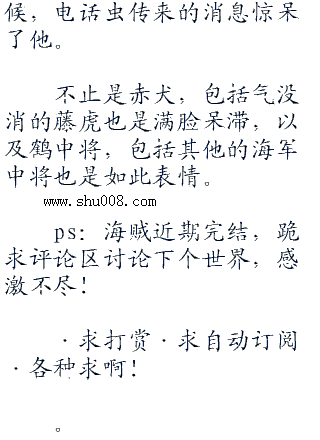 候，电话虫传来的消息惊呆
了他。
不止是赤犬，包括气没
消的藤虎也是满脸呆滞，以
及鹤中将，包括其他的海军
中将也是如此表情。
www.shu008.com
ps：海贼近期完结，跪
求评论区讨论下个世界，感
激不尽！
·求打赏·求自动订阅
·各种求啊！
。